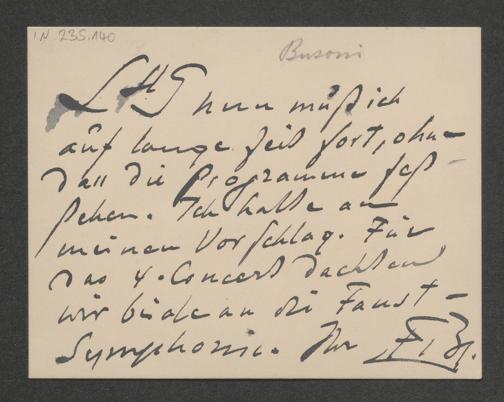 I.N. 235.140
Busoni
L H G nun muß ich
auf lange Zeit fort, ohne
dass die Programme fest
stehen. Ich halte an
meinen Vorschlag. Für
das 4. Concert dachten
wir beide an die Faust-
Symphonie. Ihr F. B.